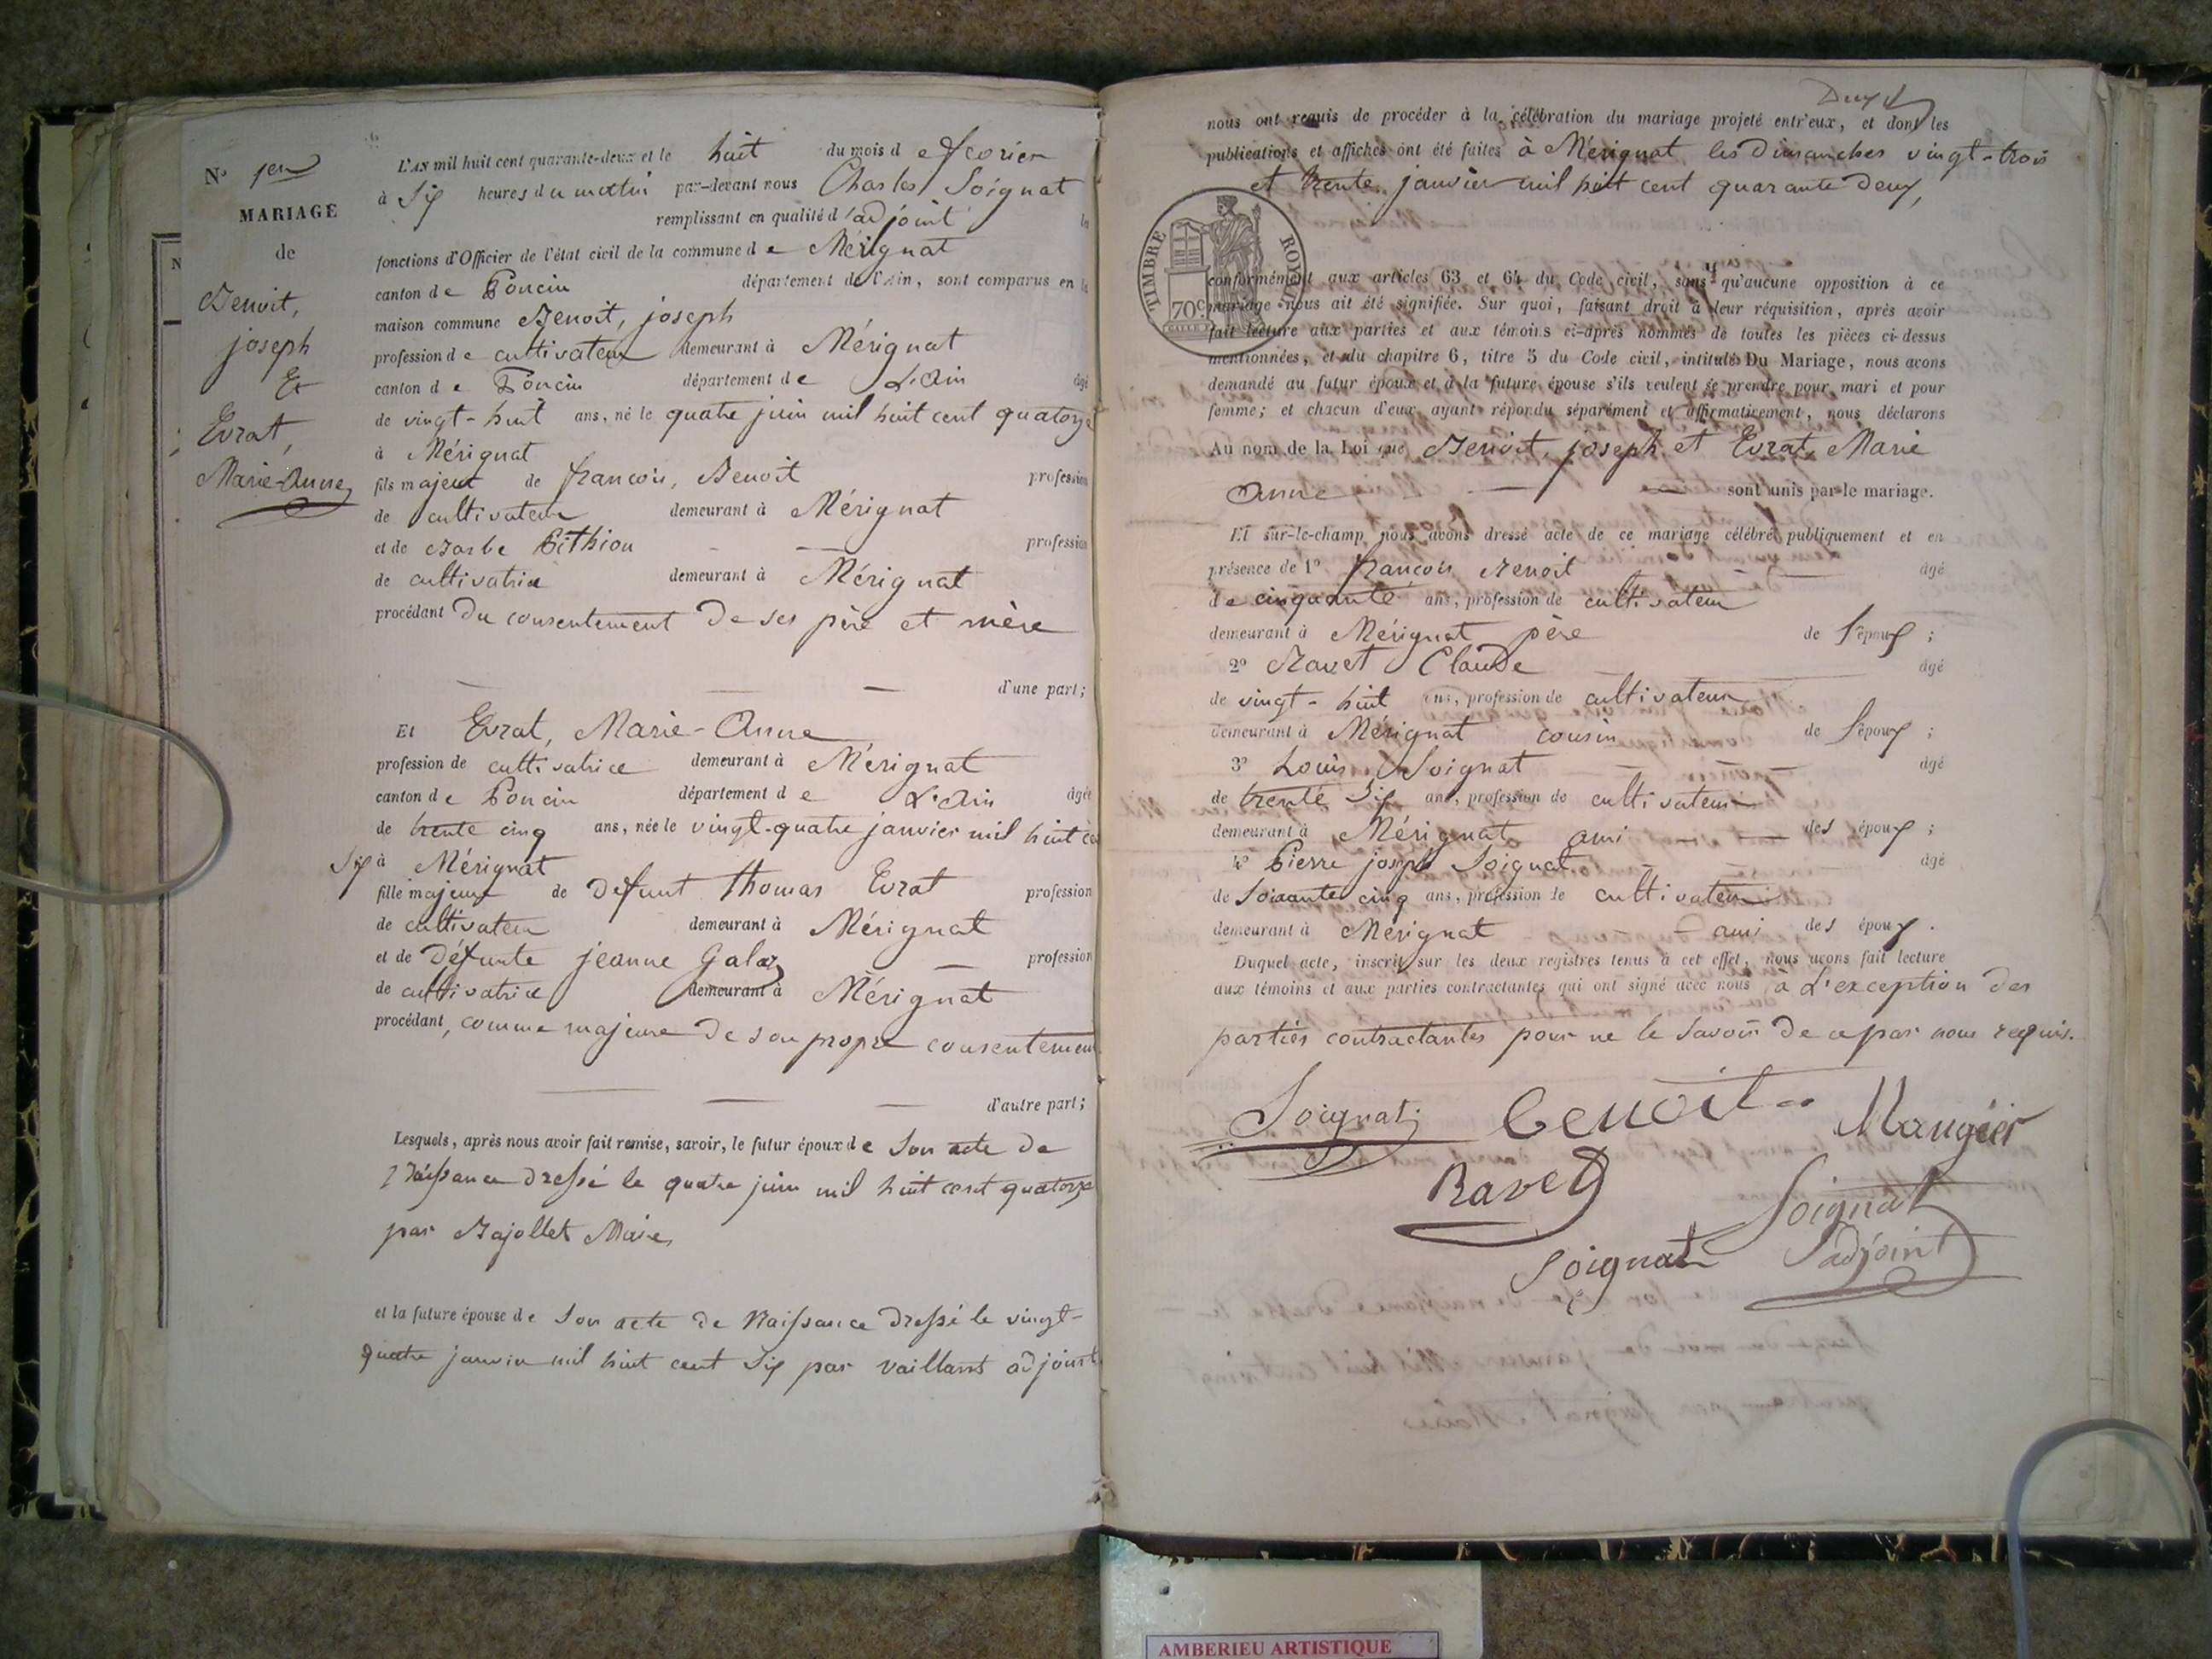 N° 1er
MARIAGE
de
Benoit,
joseph
Et
Evrat,
Marie-Anne
L'AN mil huit cent quarante-deux et le huit du mois de fevrier
à Six heures du mattin par-devant nous Charles Soignat
remplissant en qualité d'adjoint les
fonctions d'Officier de l'état civil de la commune de Mérignat
canton de Poncin département de l'Ain, sont comparus en la
maison commune Benoit, joseph
profession de cultivateur demeurant à Mérignat
canton de Poncin département de L'Ain âgé
de vingt-huit ans, né le quatre juin mil huit cent quatorze
à Mérignat
fils majeur de françois, Benoit profession
de cultivateur demeurant à Mérignat
et de Barbe Pithiou profession
de cultivatrice demeurant à Mérignat
procédant du consentement de ses père et mère
d'une part;
Et Evrat, Marie-Anne
profession de cultivatrice demeurant à Mérignat
canton de Poncin département de L'Ain âgée
de trente cinq ans, née le vingt-quatre janvier mil huit cent
Six à Mérignat
fille majeure de defunt thomas Evrat profession
de cultivateur demeurant à Mérignat
et de défunte jeanne Galaz profession
de cultivatrice demeurant à Mérignat
procédant, comme majeure de son propre consentement
d'autre part;
Lesquels, après nous avoir fait remise, savoir, le futur époux de Son acte de
Naissance dressé le quatre juin mil huit cent quatorze
par Bajollet Maire
et la future épouse de Son acte de Naissance dressé le vingt-
quatre janvier mil huit cent Six par vaillant adjoint
Deux
nous ont requis de procéder à la célébration du mariage projeté entr'eux, et dont les
publications et affiches ont été faites à Mérignat les dimanches vingt-trois
et trente janvier mil huit cent quarante deux,
TIMBRE ROYAL
70 c
conformément aux articles 63 et 64 du Code civil, sans qu'aucune opposition à ce
mariage nous ait été signifiée. Sur quoi, faisant droit à leur réquisition, après avoir
fait lecture aux parties et aux témoins ci-après nommés de toutes les pièces ci-dessus
mentionnées, et du chapitre 6, titre 5 du Code civil, intitulé Du Mariage, nous avons
demandé au futur époux et à la future épouse s'ils veulent se prendre pour mari et pour
femme; et chacun d'eux ayant répondu séparément et affirmativement, nous déclarons
Au nom de la Loi que Benoit, joseph et Evrat, Marie
Anne sont unis par le mariage.
Et sur-le-champ nous avons dressé acte de ce mariage célébré publiquement et en
présence de 1° françois Benoit âgé
de cinquante ans, profession de cultivateur
demeurant à Mérignat père de l'époux ;
2° Ravet Claude âgé
de vingt-huit ans, profession de cultivateur
demeurant à Mérignat cousin de l'époux ;
3° Louis Soignat âgé
de trente Six ans, profession de cultivateur
demeurant à Mérignat ami des époux ;
4° Pierre joseph Soignat âgé
de Soixante cinq ans, profession de cultivateur
demeurant à Mérignat ami des époux .
Duquel acte, inscrit sur les deux registres tenus à cet effet, nous avons fait lecture
aux témoins et aux parties contractantes qui ont signé avec nous à L'exception des
parties contractantes pour ne le Savoir de ce par nous requis.
Soignat Benoit Maugier
Ravet
Soignat
Soignat adjoint
AMBERIEU ARTISTIQUE